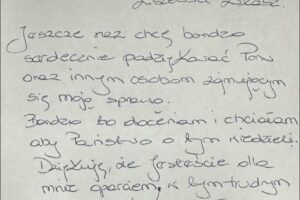 Jeszcze raz chcę bardzo
serdecznie podziękować Panu
oraz innym osobom zajmującym
się moją sprawą.
Bardzo to doceniam i chciałam
aby Państwo o tym wiedzieli.
Dziękuję, że jesteście dla
mnie oparciem, w tym trudnym